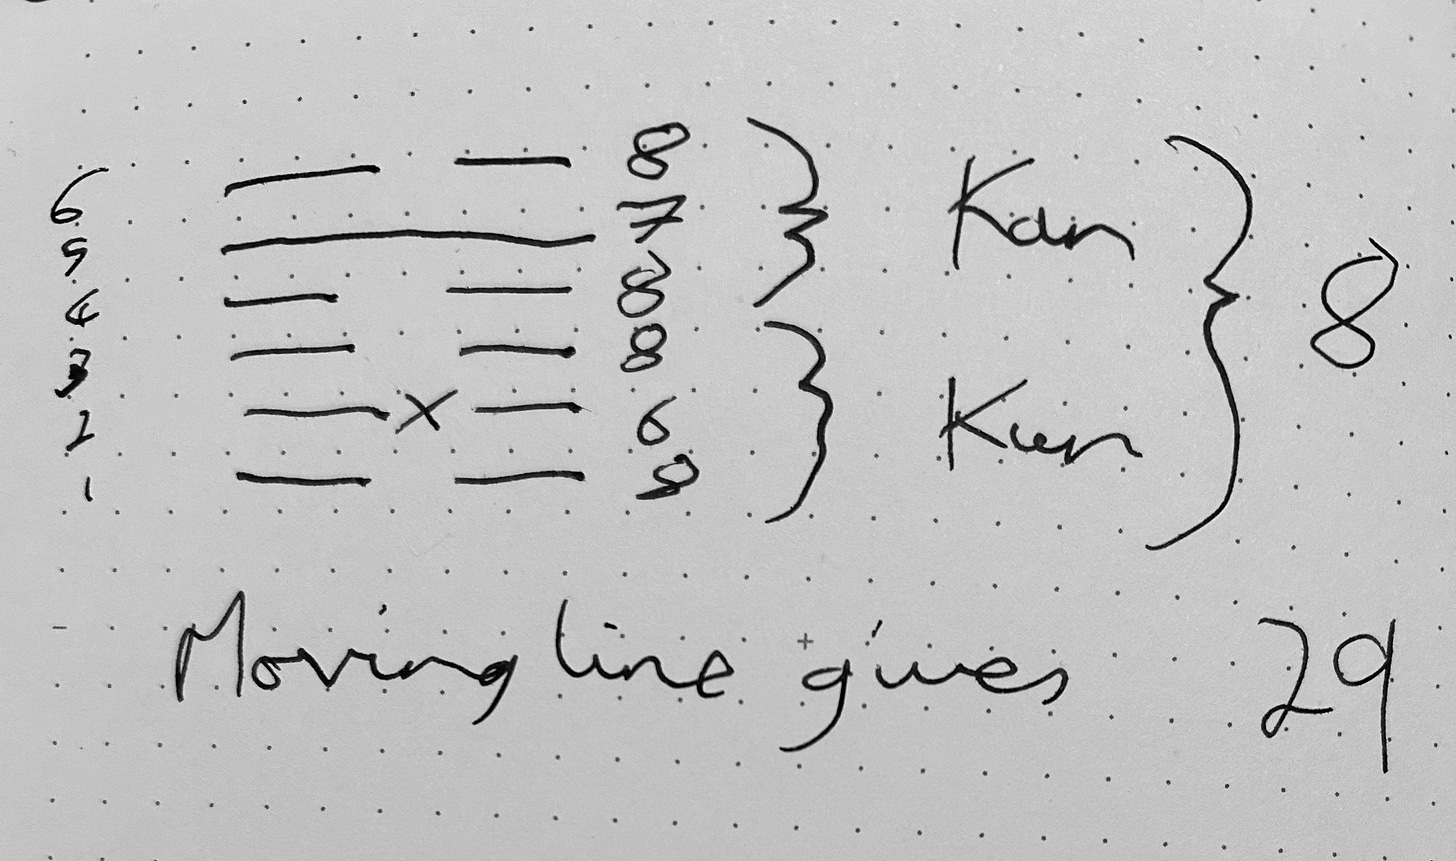 6 8
5 7 Kan
4 8
3 8 8
2 6 Kun
1 8
Moving line gives 29